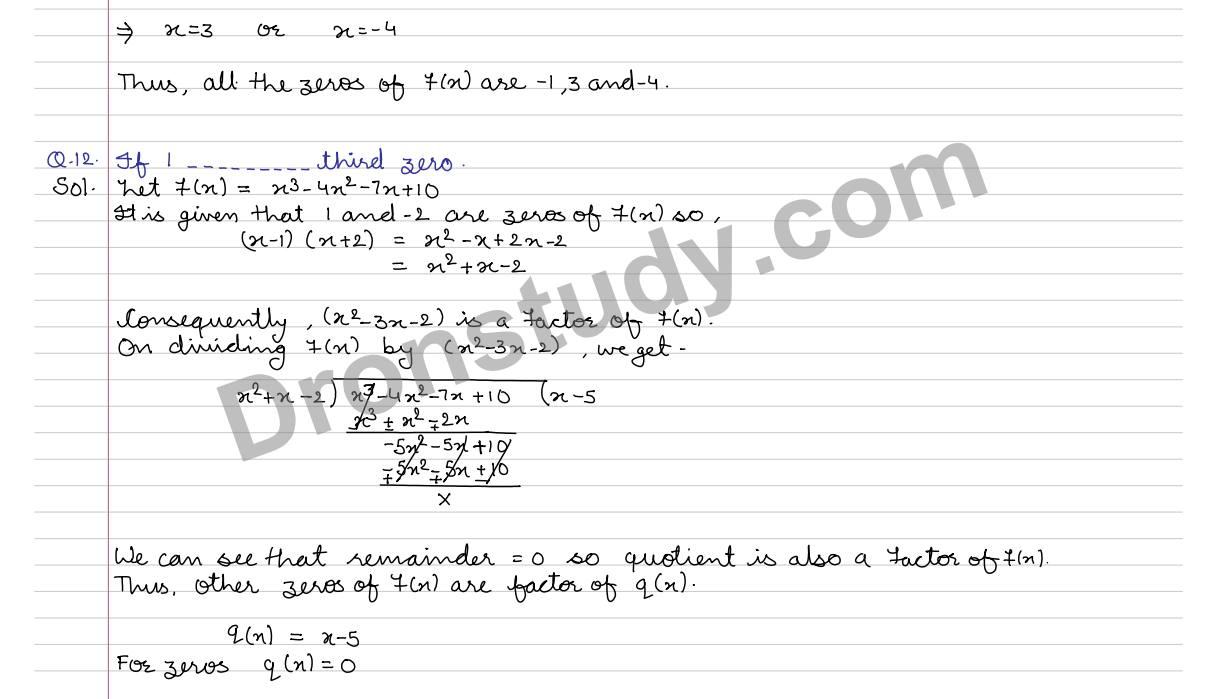 ⇒ x=3 or x=-4
Thus, all the zeros of f(x) are -1,3 and -4.
Q.12. If 1 _ _ _ _ _ _ _ _ _ third zero.
Sol. Let f(x) = x³-4x²-7x+10
It is given that 1 and -2 are zeros of f(x) so,
(x-1) (x+2) = x²-x+2x-2
= x²+x-2
Consequently, (x²-3x-2) is a factor of f(x).
On dividing f(x) by (x²-3x-2), we get -
x²+x-2) x³-4x²-7x+10 (x-5
x³ ± x² ∓ 2x
-5x²-5x+10
∓5x² ∓ 5x ± 10
x
We can see that remainder = 0 so quotient is also a factor of f(x).
Thus, other zeros of f(x) are factor of q(x).
q(x) = x-5
For zeros q(x) = 0
Dronstudy.com